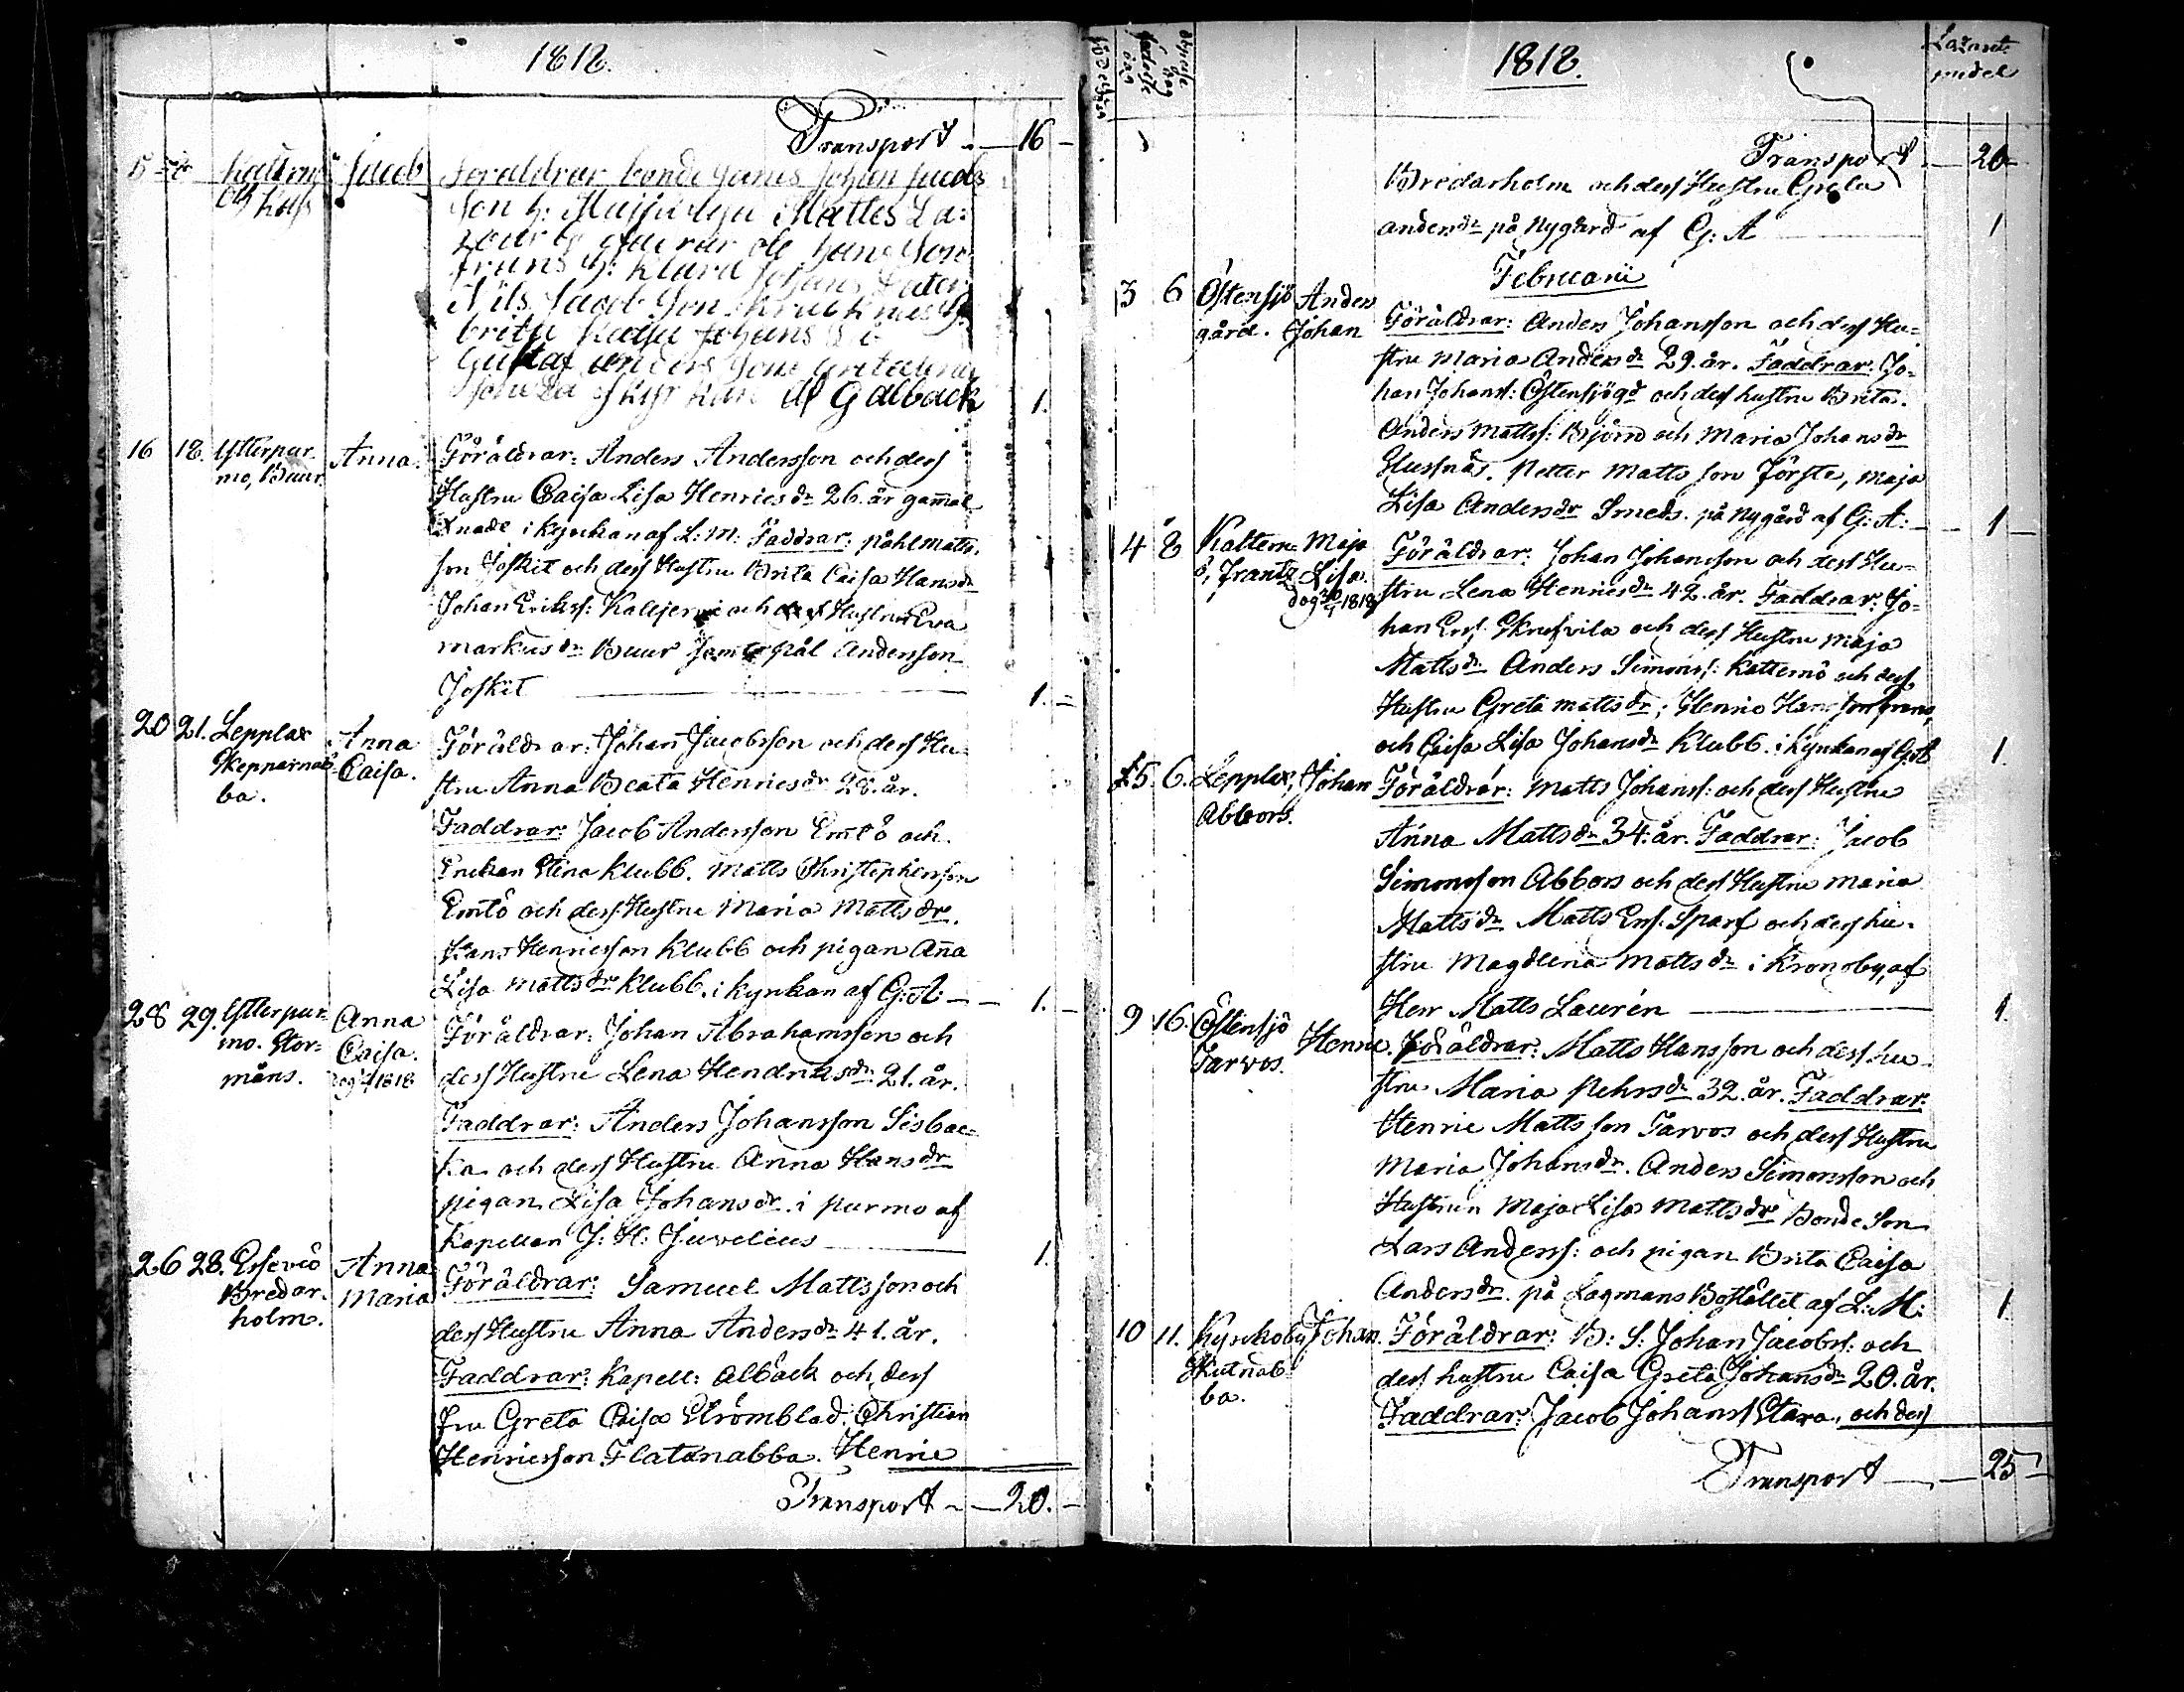 1818.
Transport 16
15 Katternö Jacob foraldrar bonde sonen Johan Jacob
son h: Majsa Lisa Mattes
frans h: klara Johans Dater
Nils Jacob Son h:
brita kaisa Johans D:
Gustaf anders Sons Greta Lena
kyrkan af G alback 1.
16 18. Ytterpur- Anna. Föräldrar: Anders Andersson och dess
mo, Buur. Hustru Caisa Lisa Henricsdr 26. år gammal
Knade i kyrckan af L: M: Faddrar: påhl matts-
son Joskit och dess Hustru Brita Caisa Hansdr
Johan Erikss: Kalljervi och dess Hustru Eva
markusdr Buur samt pål Andersson
Joskit 1.
20 21. Lepplax Anna Föräldrar: Johan Jacobsson och dess Hu-
Skepparnab- Caisa. stru Anna Beata Henricsdr 28. år.
ba.
Faddrar: Jacob Andersson Emtö och
Enckan Stina Klubb. Matts Christophersson
Emtö och dess Hustru Maria Mattsdr.
Hans Henricsson Klubb och pigan Aña
Lisa mattsdr Klubb. i kyrkan af G: A: 1.
28 29. Ytterpur- Anna Föräldrar: Johan Abrahamsson och
mo. Stor- Caisa. dess Hustru Lena Hendricsdr 21. år.
måns. dog 1818
Faddrar: Anders Johansson Sisbac-
ka och dess Hustru Anna Hansdr
pigan Lisa Johansdr. i purmo af
Kapellan J: H: Juvelius 1.
26 28. Essevio Anna Föräldrar: Samuel Mattsson och
Bredar- Maria dess Hustru Anna Andersdr 41. år.
holm.
Faddrar: Kapell: Alback och dess
fru Greta Caisa Strömblad. Christian
Henricsson Flatanabba. Henric
Transport 20.
1818.
Lazarett
medel
Transport 20
Bredarholm och dess Hustru Greta
andersdr på Nygård af G: A 1
Februarii
3 6 Östensjö Anders Föräldrar: Anders Johansson och dess Hu-
gård. Johan stru Maria Andersdr 29. år. Faddrar: Jo-
han Johanss: Östensjögd och dess hustru Brita.
Anders Mattss: Björnö och Maria Johansdr
Hussnäs. Petter Mattsson Förste, Maja
Lisa Andersdr Smeds. på Nygård af G: A: 1
4 8 Kattern- Maja Föräldrar: Johan Johansson och dess Hu-
ö, Frants Lisa. stru Lena Henricsdr 42. år. Faddrar: Jo-
dog 1818 han Erss: Skrufvila och dess Hustru Maja
Mattsdr Anders Simonss: Katternö och dess
Hustru Greta mattsdr; Henric Hansson frans,
och Caisa Lisa Johansdr Klubb. i Kyrkan af G: A 1.
5. 6. Lepplax, Johan Föräldrar: Matts Johanss: och dess Hustru
Abbors. Anna Mattsdr 34. år. Faddrar: Jacob
Simonsson Abbors och dess Hustru Maria
Mattsdr Matts Erss. Sparf och dess hu-
stru Magdlena Mattsdr i Kronoby, af
Herr Matts Laurén 1.
9 16. Östensjö Henric. Föräldrar: Matts Hansson och dess hu-
Tarvos. stru Maria Pehrsdr 32. år. Faddrar:
Henric Mattsson Tarvos och dess Hustru
Maria Johansdr. Anders Simonsson och
Hustrun Maja Lisa Mattsdr Bonde Son
Lars Anderss: och pigan Brita Caisa
Andersdr. på Lagmans Bostället af L: M: 1.
10 11. Kyrckoby Johan. Föräldrar: B: S: Johan Jacobss: och
Skutnab- dess hustru Caisa Greta Johansdr 20. år.
ba. Faddrar: Jacob Johanss Stara, och dess
Transport 25